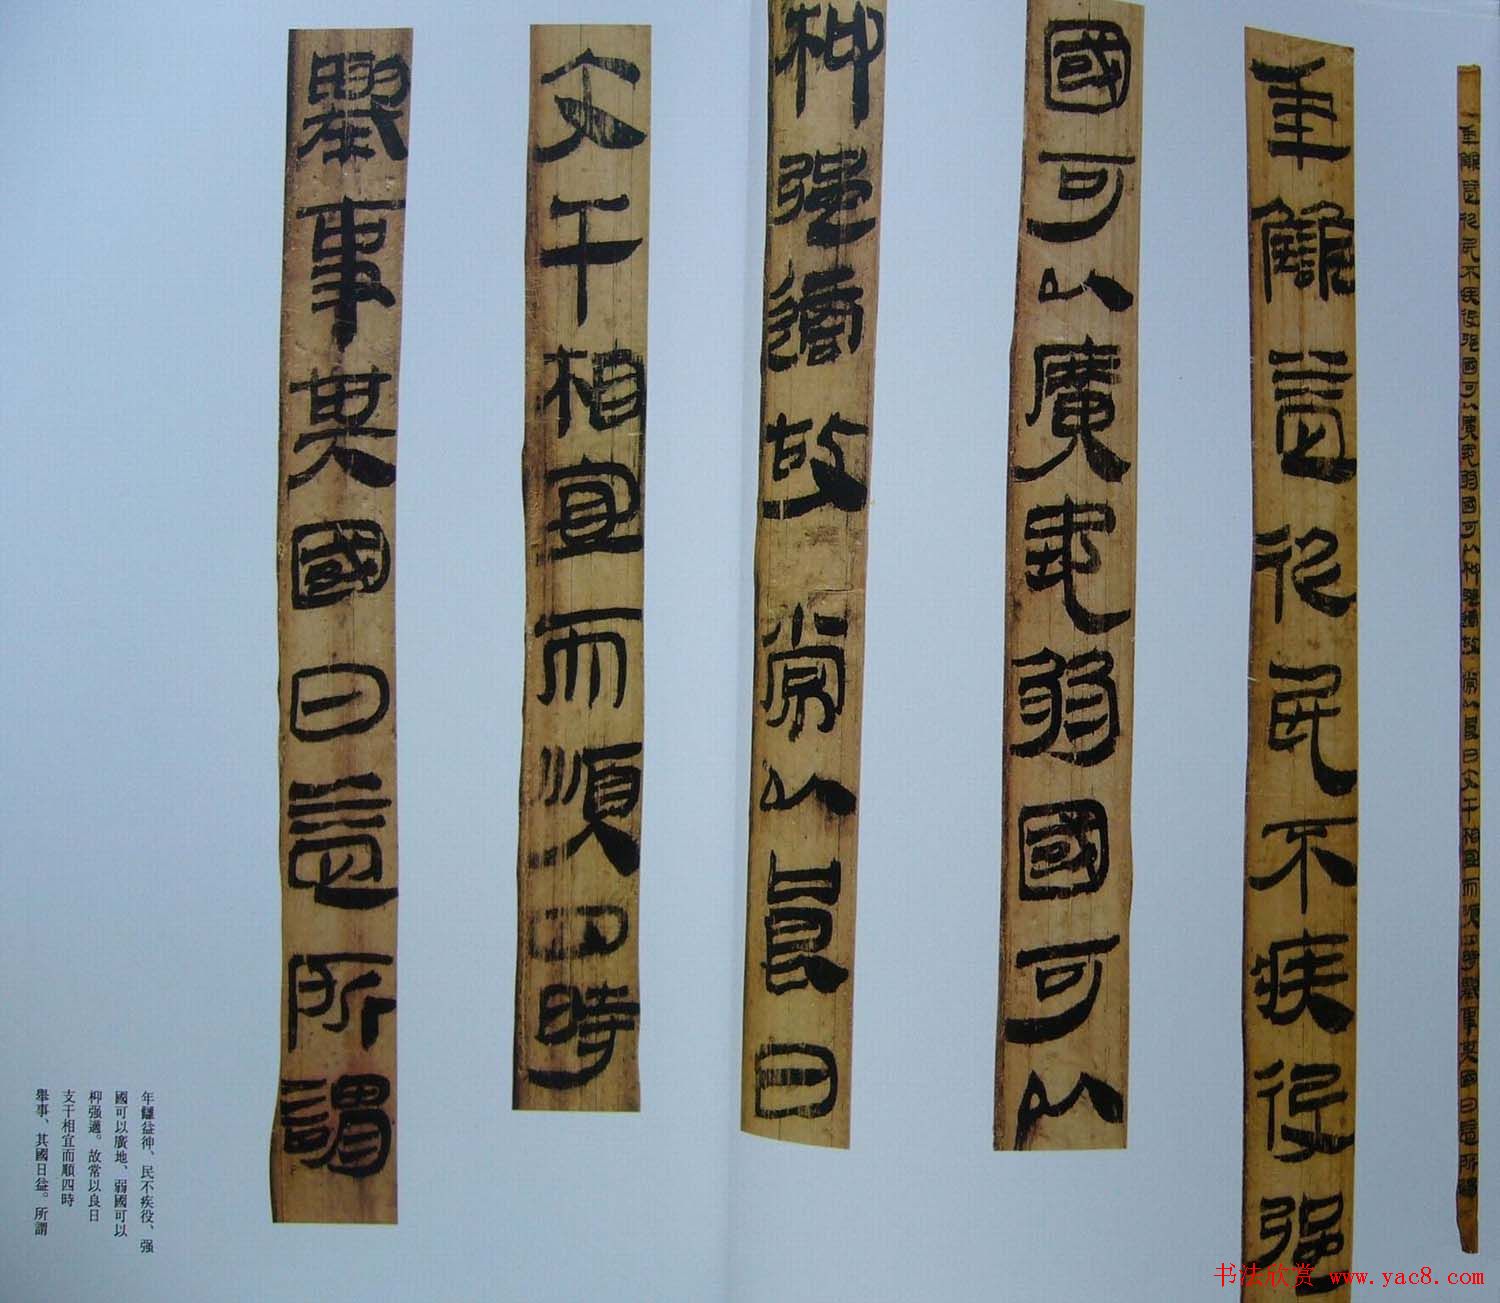 年益民不疾役强國可以廣地弱國可以枊强適故常以良日支干相宜而順四時舉事其國日益所謂
年益民不疾役强
國可以廣地弱國可以
枊强適故常以良日
支干相宜而順四時
舉事其國日益所謂
年益、民不疾役、强
國可以廣地、弱國可以
枊强適。故常以良日
支干相宜而順四時
舉事、其國日益。所謂
书法欣赏 www.yac8.com